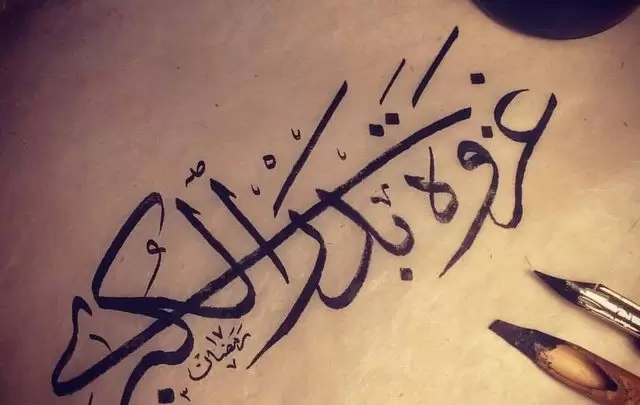 غزوة بدر الكبرى
١٧ رمضان